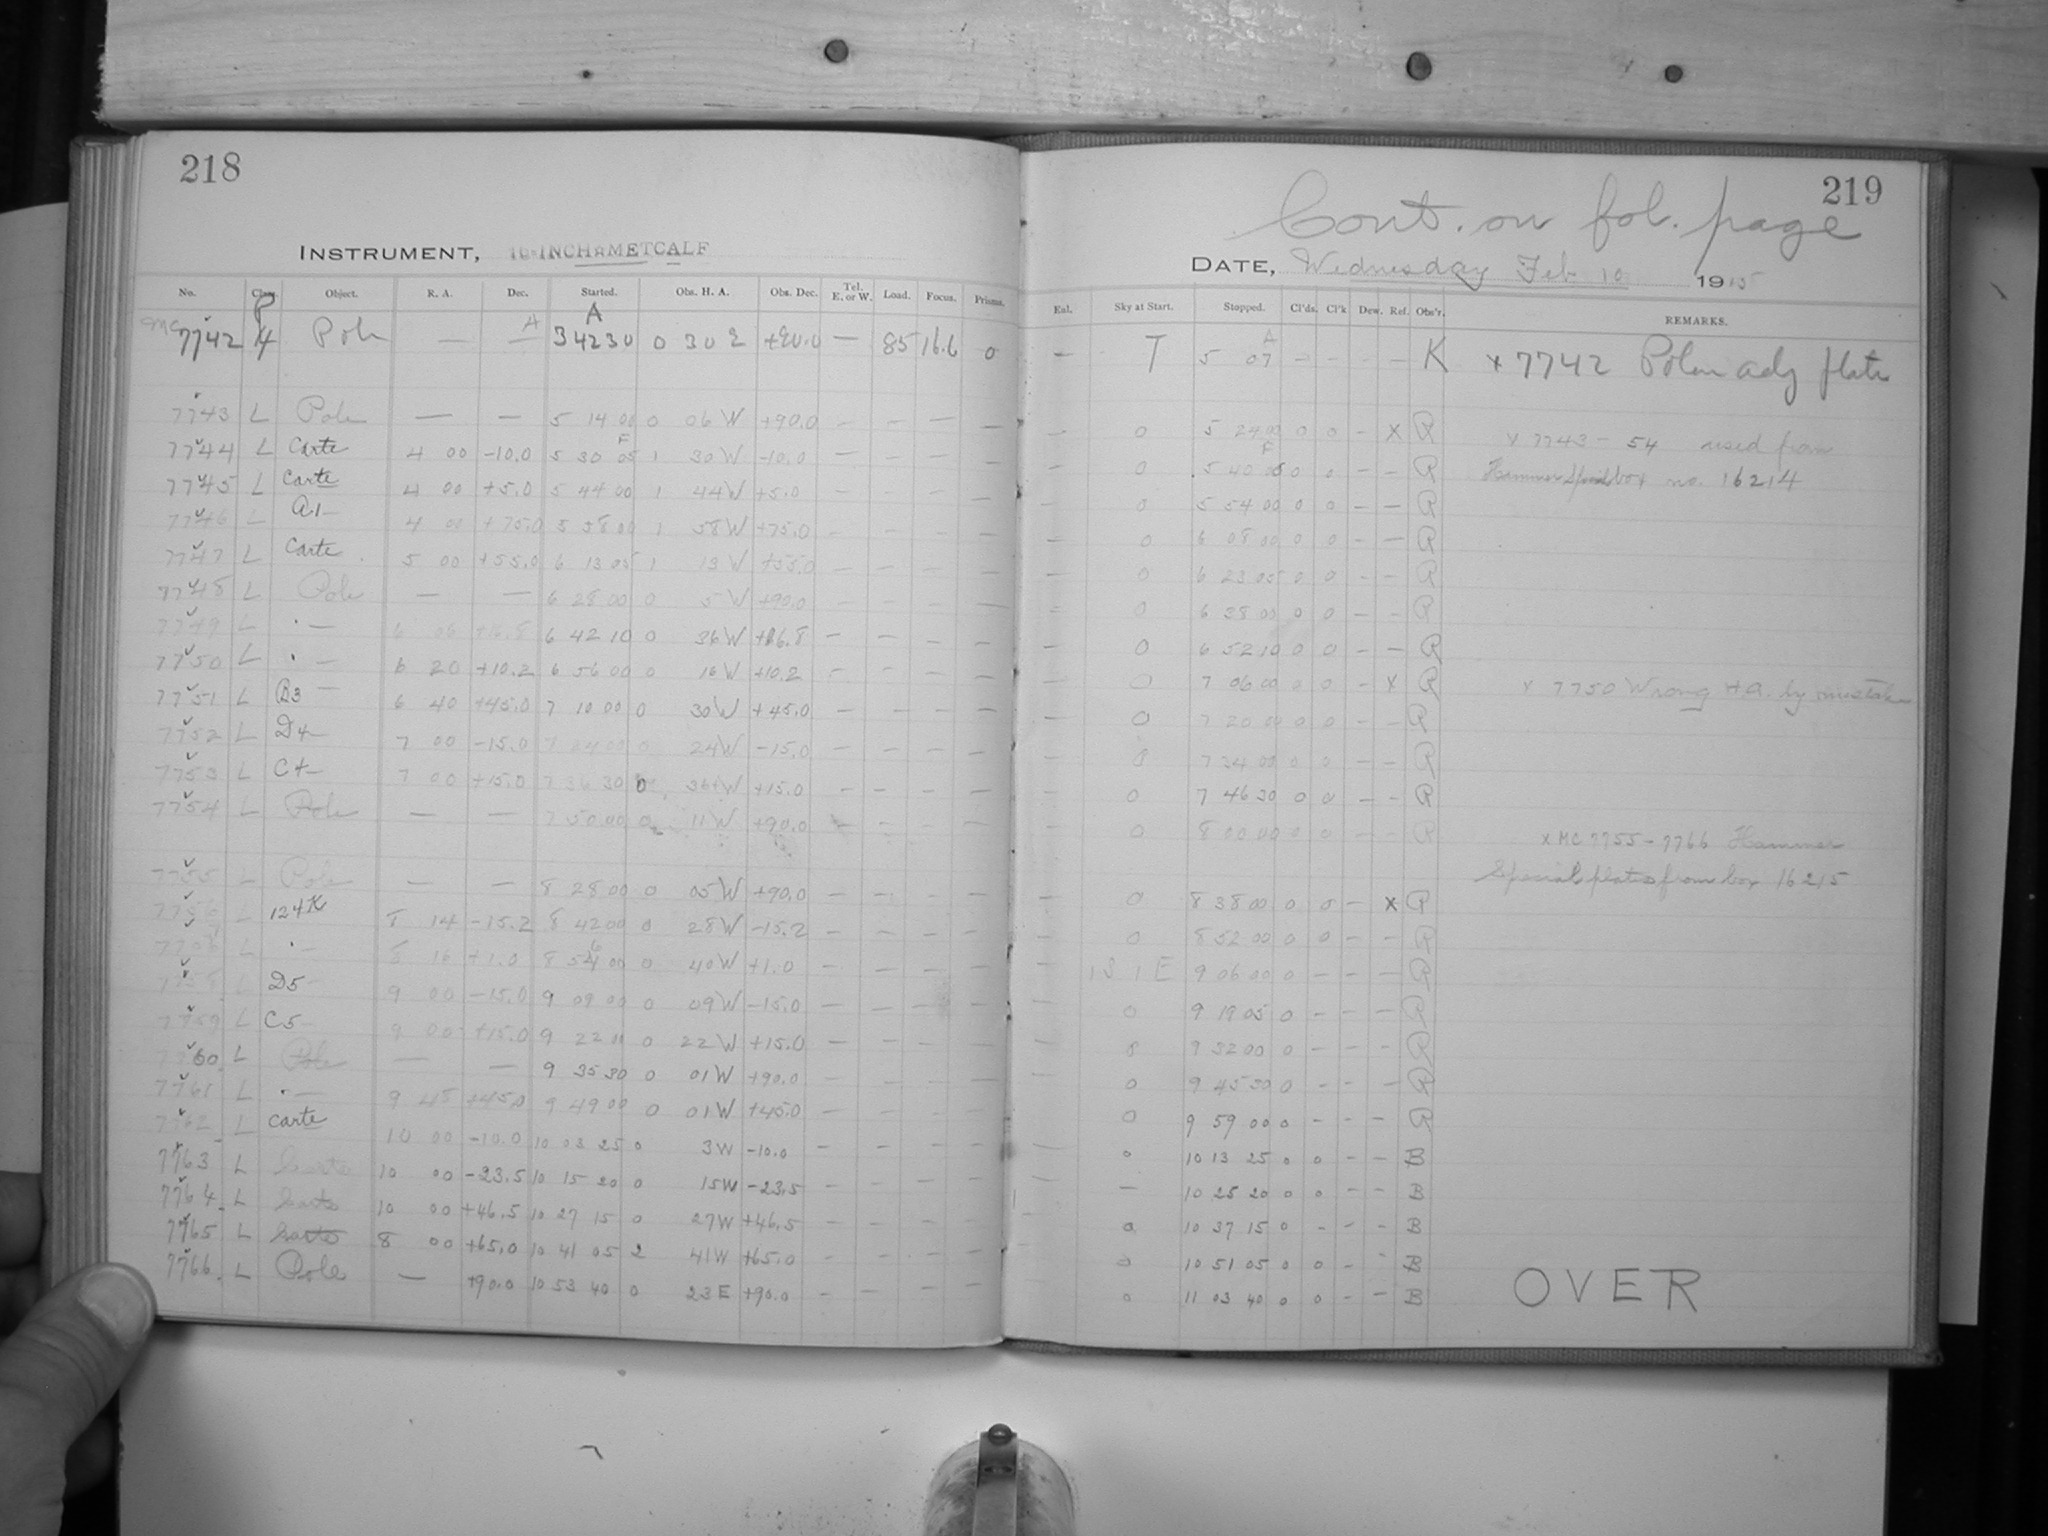 218
INSTRUMENT, 16-INCH METCALF
No. Class. Object. R. A. Dec. Started. Obs. H. A. Obs. Dec. Tel. E. or W. Load. Focus. Prisms.
MC 7742 Pole — — A 3 42 30 0 30 +90.0 — 85 16.6 0
7743 L Pole — — 5 14 00 0 06 W +90.0 — — — —
7744 L Carte 4 00 -10.0 5 30 05 1 30 W -10.0 — — — —
7745 L Carte 4 00 +5.0 5 44 00 1 44 W +5.0 — — — —
7746 L A1 4 00 +75.0 5 58 00 1 58 W +75.0 — — — —
7747 L Carte 5 00 +55.0 6 13 05 1 13 W +55.0 — — — —
7748 L Pole — — 6 28 00 0 5 W +90.0 — — — —
7749 L — 6 06 6 42 10 0 36 W +16.8 — — — —
7750 L — 6 20 +10.2 6 56 00 0 16 W +10.2 — — — —
7751 L B3 6 40 +45.0 7 10 00 0 30 W +45.0 — — — —
7752 L D4 7 00 -15.0 7 24 00 0 24 W -15.0 — — — —
7753 L C4 7 00 +15.0 7 36 30 0 36 W +15.0 — — — —
7754 L Pole — — 7 50 00 0 11 W +90.0 — — — —
7755 L Pole — — 8 28 00 0 05 W +90.0 — — — —
7756 L 124K 8 14 -15.2 8 42 00 0 28 W -15.2 — — — —
L — 8 16 +1.0 8 56 00 0 40 W +1.0 — — — —
7758 L D5 9 00 -15.0 9 09 00 0 09 W -15.0 — — — —
7759 L C5 9 00 +15.0 9 22 10 0 22 W +15.0 — — — —
7760 L Pole — — 9 35 30 0 01 W +90.0 — — — —
7761 L — 9 48 +45.0 9 49 00 0 01 W +45.0 — — — —
7762 L Carte 10 00 -10.0 10 03 25 0 3 W -10.0 — — — —
7763 L Carte 10 00 -23.5 10 15 20 0 15 W -23.5 — — — —
7764 L Carte 10 00 +46.5 10 27 15 0 27 W +46.5 — — — —
7765 L Carte 8 00 +65.0 10 41 05 2 41 W +65.0 — — — —
7766 L Pole — +90.0 10 53 40 0 23 E +90.0 — — — —
219
Cont. on fol. page
DATE, Wednesday Feb 10 1915
Enl. Sky at Start. Stopped. Cl'ds. Cl'k Dew. Ref. Obs'r. REMARKS.
— T A 5 07 — — — — K x 7742 Polar adj plate
— 0 5 24 00 0 0 — x R x 7743-54 used from
— 0 5 40 05 0 0 — — R Hammer Special box no. 16214
— 0 5 54 00 0 0 — — R
— 0 6 08 00 0 0 — — R
— 0 6 23 05 0 0 — — R
— 0 6 38 00 0 0 — — R
— 0 6 52 10 0 0 — — R
— 0 7 06 00 0 0 — x R x 7750 Wrong H.A. by mistake
— 0 7 20 00 0 0 — — R
— 0 7 34 00 0 0 — — R
— 0 7 46 30 0 0 — — R
— 0 8 00 00 0 0 — — R
x MC 7755-7766 Hammer
Special plates from box 16215
— 0 8 38 00 0 0 — x R
— 0 8 52 00 0 0 — — R
— 1 S 1 E 9 06 00 0 — — — R
— 0 9 19 05 0 — — — R
— 0 9 32 00 0 — — — R
— 0 9 45 30 0 — — — R
— 0 9 59 00 0 — — — R
— 0 10 13 25 0 0 — — B
— — 10 25 20 0 0 — — B
— 0 10 37 15 0 — — — B
— 0 10 51 05 0 0 — — B
— 0 11 03 40 0 0 — — B
OVER